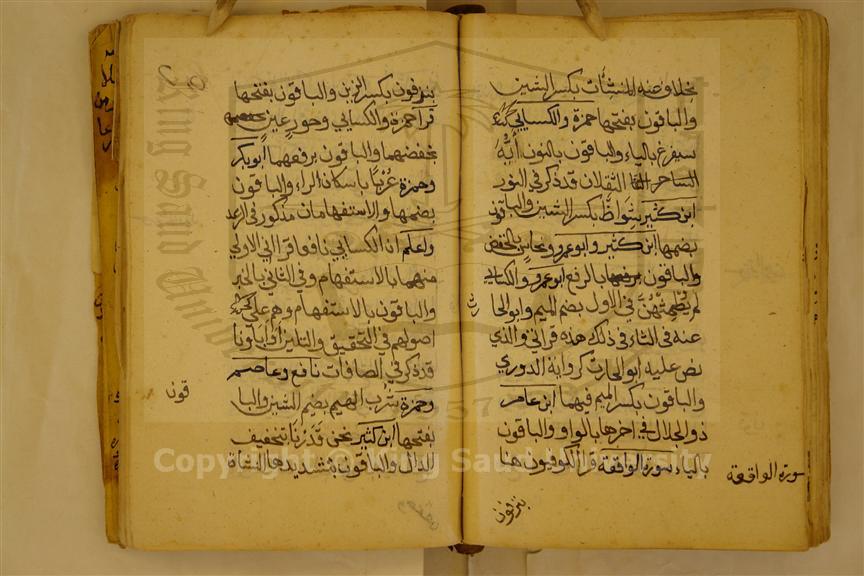 بخلاف عنه المنشئات بكسر الشين
والباقون بفتحها حمزة والكسائي
سيفرغ بالياء والباقون بالنون أيه
الساحر الثقلان قد ذكر في النور
ابن كثير شواظ بكسر الشين والباقون
بضمها ابن كثير وابو عمرو ونحاس بالخفض
والباقون بالرفع ابو عمرو والكسائي
لم يطمثهن في الاول بضم الميم وابو الحا
رث
عنه في الثاء في ذلك هذه قراتي والذي
نص عليه ابو الحارث كرواية الدوري
والباقون بكسر الميم فيهما ابن عامر
ذو الجلال في اخرها بالواو والباقون
بالياء سورة الواقعة قرأ الكوفيون هنا
سورة الواقعة
ينزفون
ينزفون بكسر الزين والباقون بفتحها
قرا حمزة والكسائي وحور عين
بخفضهما والباقون برفعهما ابو بكر
وحمزة عربا باسكان الراء والباقون
بضمها والاستفهامان مذكور في الرعد
واعلم ان الكسائي نافعا قرا في الاولي
منهما بالاستفهام وفي الثاني بالخبر
والباقون بالاستفهام وهم علي
اصولهم في التحقيق والتليين او اباونا
قد ذكر في الصافات نافع وعاصم
وحمزة شرب الهيم بضم الشين والبا
قون
بفتحها ابن كثير نحن قدرنا بتخفيف
الدال والباقون بتشديدها النشاة
Copyright © King Saud University
1957